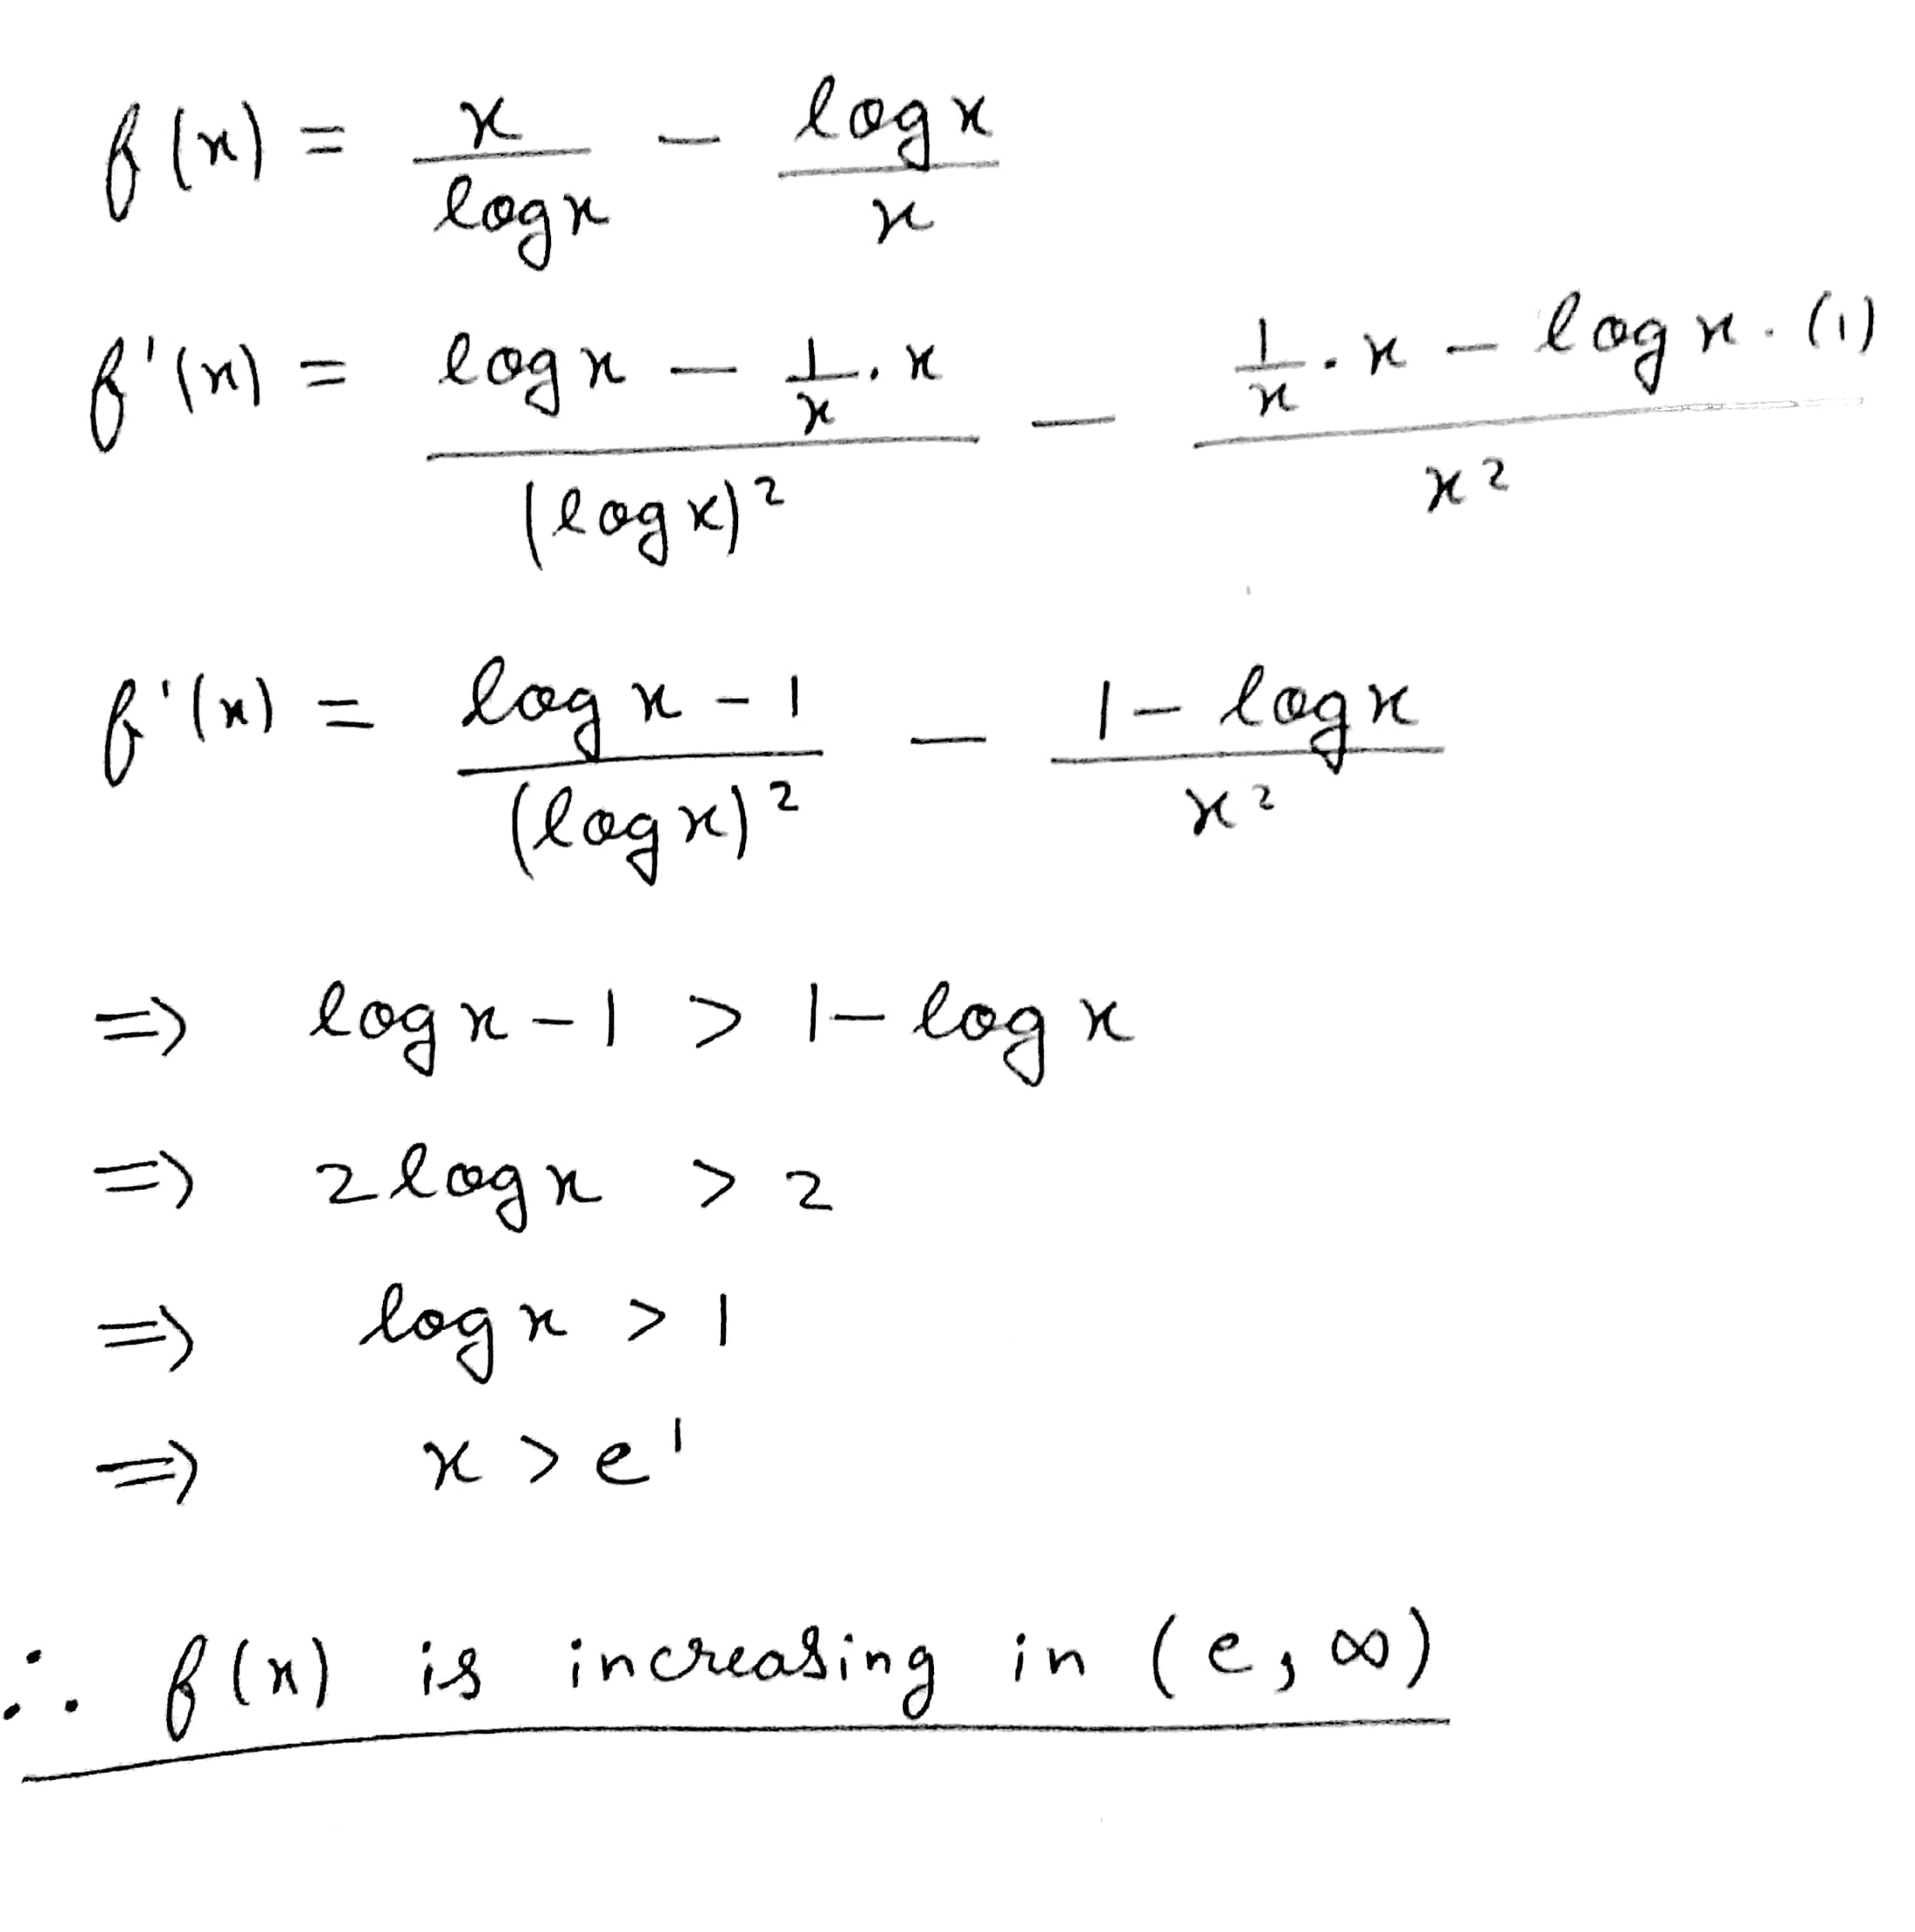 f(x) = x/log x − log x/x
f'(x) = (log x − 1/x · x)/(log x)² − (1/x · x − log x · (1))/x²
f'(x) = (log x − 1)/(log x)² − (1 − log x)/x²
⇒ log x − 1 > 1 − log x
⇒ 2 log x > 2
⇒ log x > 1
⇒ x > e¹
∴ f(x) is increasing in (e, ∞)